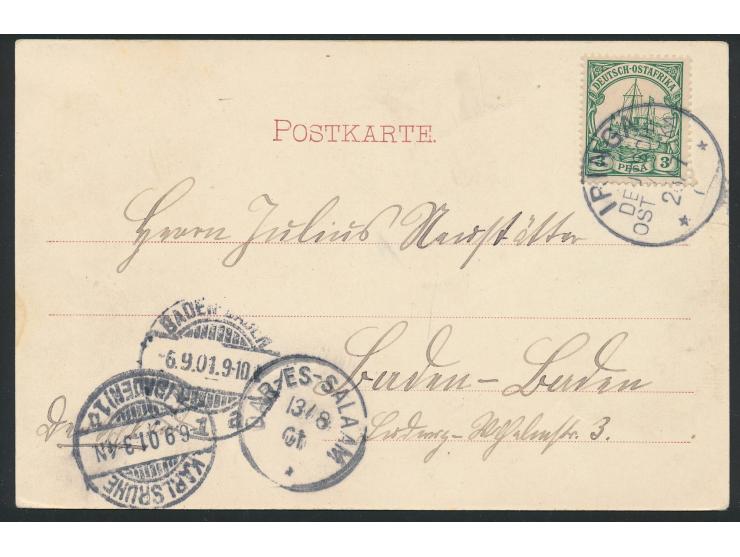 DEUTSCH-OSTAFRIKA
3 PESA 3
IRINGA
OST
POSTKARTE.
Herrn Julius Neustätter
Baden-Baden
Ludwig-Wilhelmstr. 3.
BADEN-BADEN
-6.9.01.9-10
1 a
(BADEN) 1 q
6.9.01.3-4N
KARLSRUHE
DAR-ES-SALAAM
13/8
01